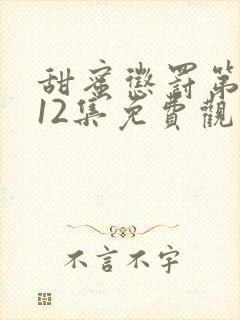 甜蜜懲罰第
12集免費觀
不言不宇